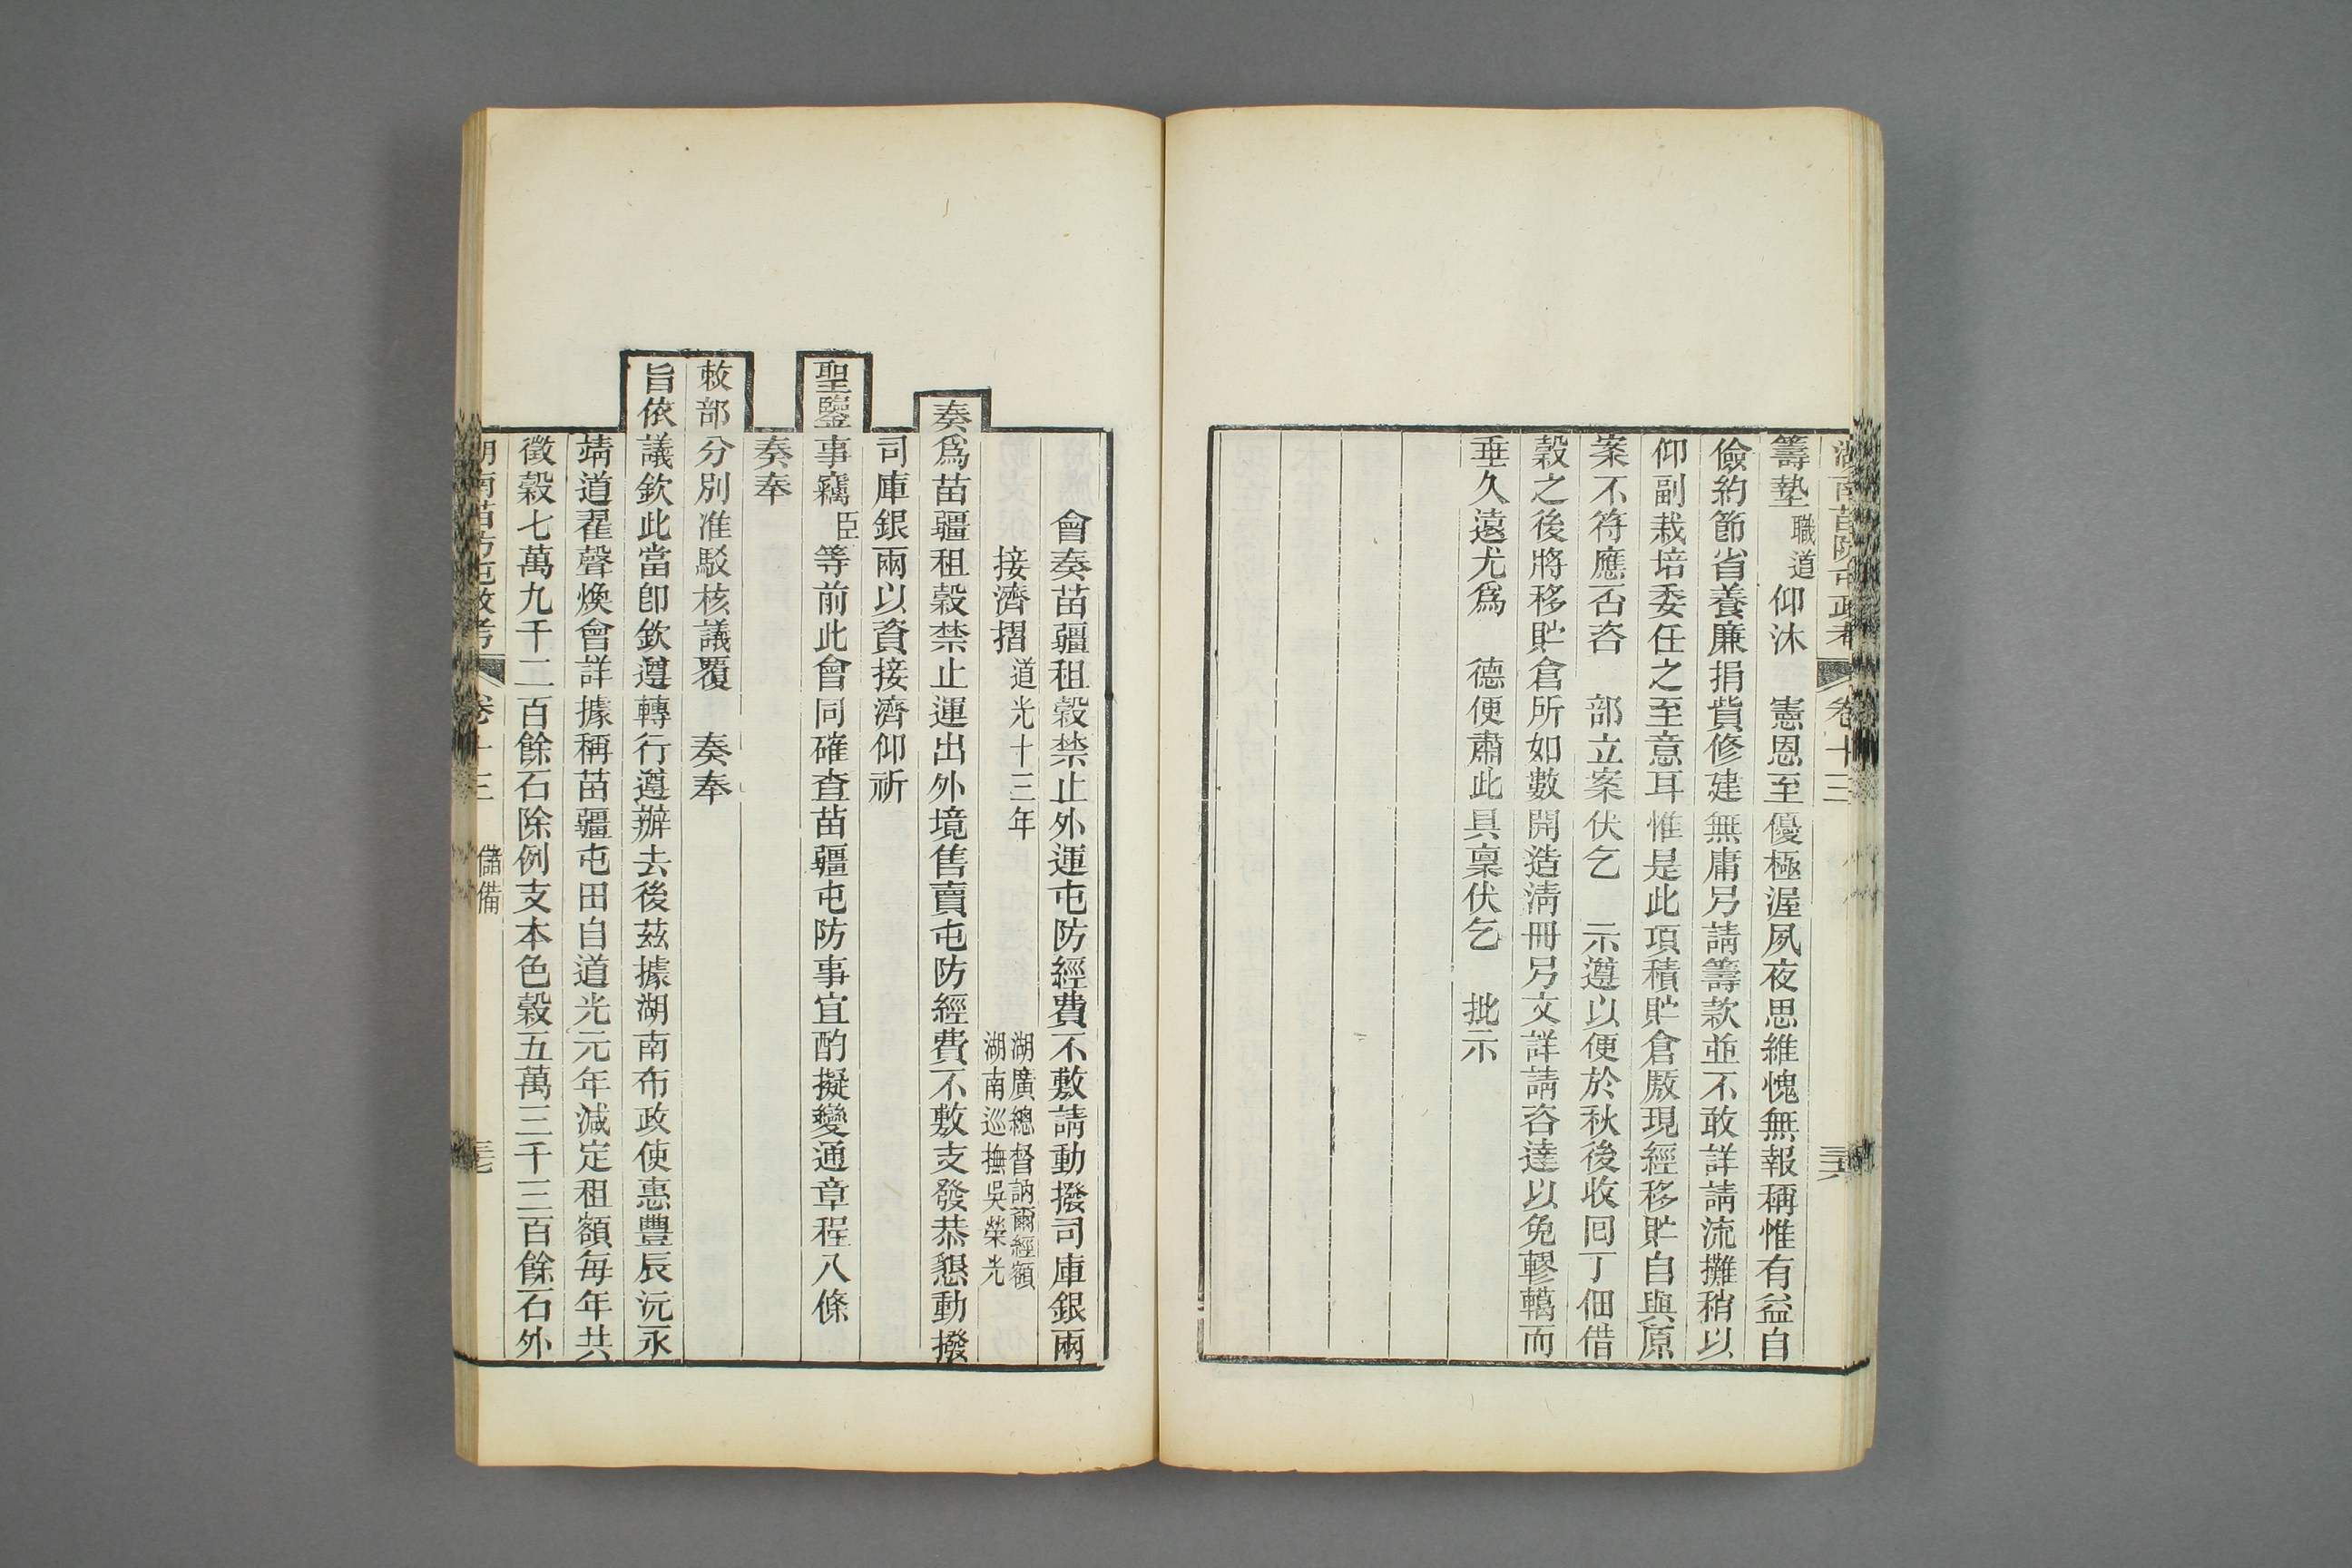 湖南苗防屯政考 卷十三 三十六
籌墊職道仰沐 憲恩至優極渥夙夜思維愧無報稱惟有益自
儉約節省養廉捐貲修建無庸另請籌款並不敢詳請流攤稍以
仰副栽培委任之至意耳惟是此項積貯倉厫現經移貯自與原
案不符應否咨 部立案伏乞 示遵以便於秋後收回丁佃借
穀之後將移貯倉所如數開造淸冊另文詳請咨達以免轇轕而
垂久遠尤爲 德便肅此具稟伏乞 批示
會奏苗疆租穀禁止外運屯防經費不敷請動撥司庫銀兩
接濟摺 道光十三年 湖廣總督訥爾經額 湖南巡撫吳榮光
奏爲苗疆租穀禁止運出外境售賣屯防經費不敷支發恭懇動撥
司庫銀兩以資接濟仰祈
聖鑒事竊臣等前此會同確查苗疆屯防事宜酌擬變通章程八條
奏奉
敕部分別准駁核議覆 奏奉
旨依議欽此當卽欽遵轉行遵辦去後茲據湖南布政使惠豐辰沅永
靖道翟聲煥會詳據稱苗疆屯田自道光元年減定租額每年共
徵穀七萬九千二百餘石除例支本色穀五萬三千三百餘石外
湖南苗防屯政考 卷十三 儲備 三十七